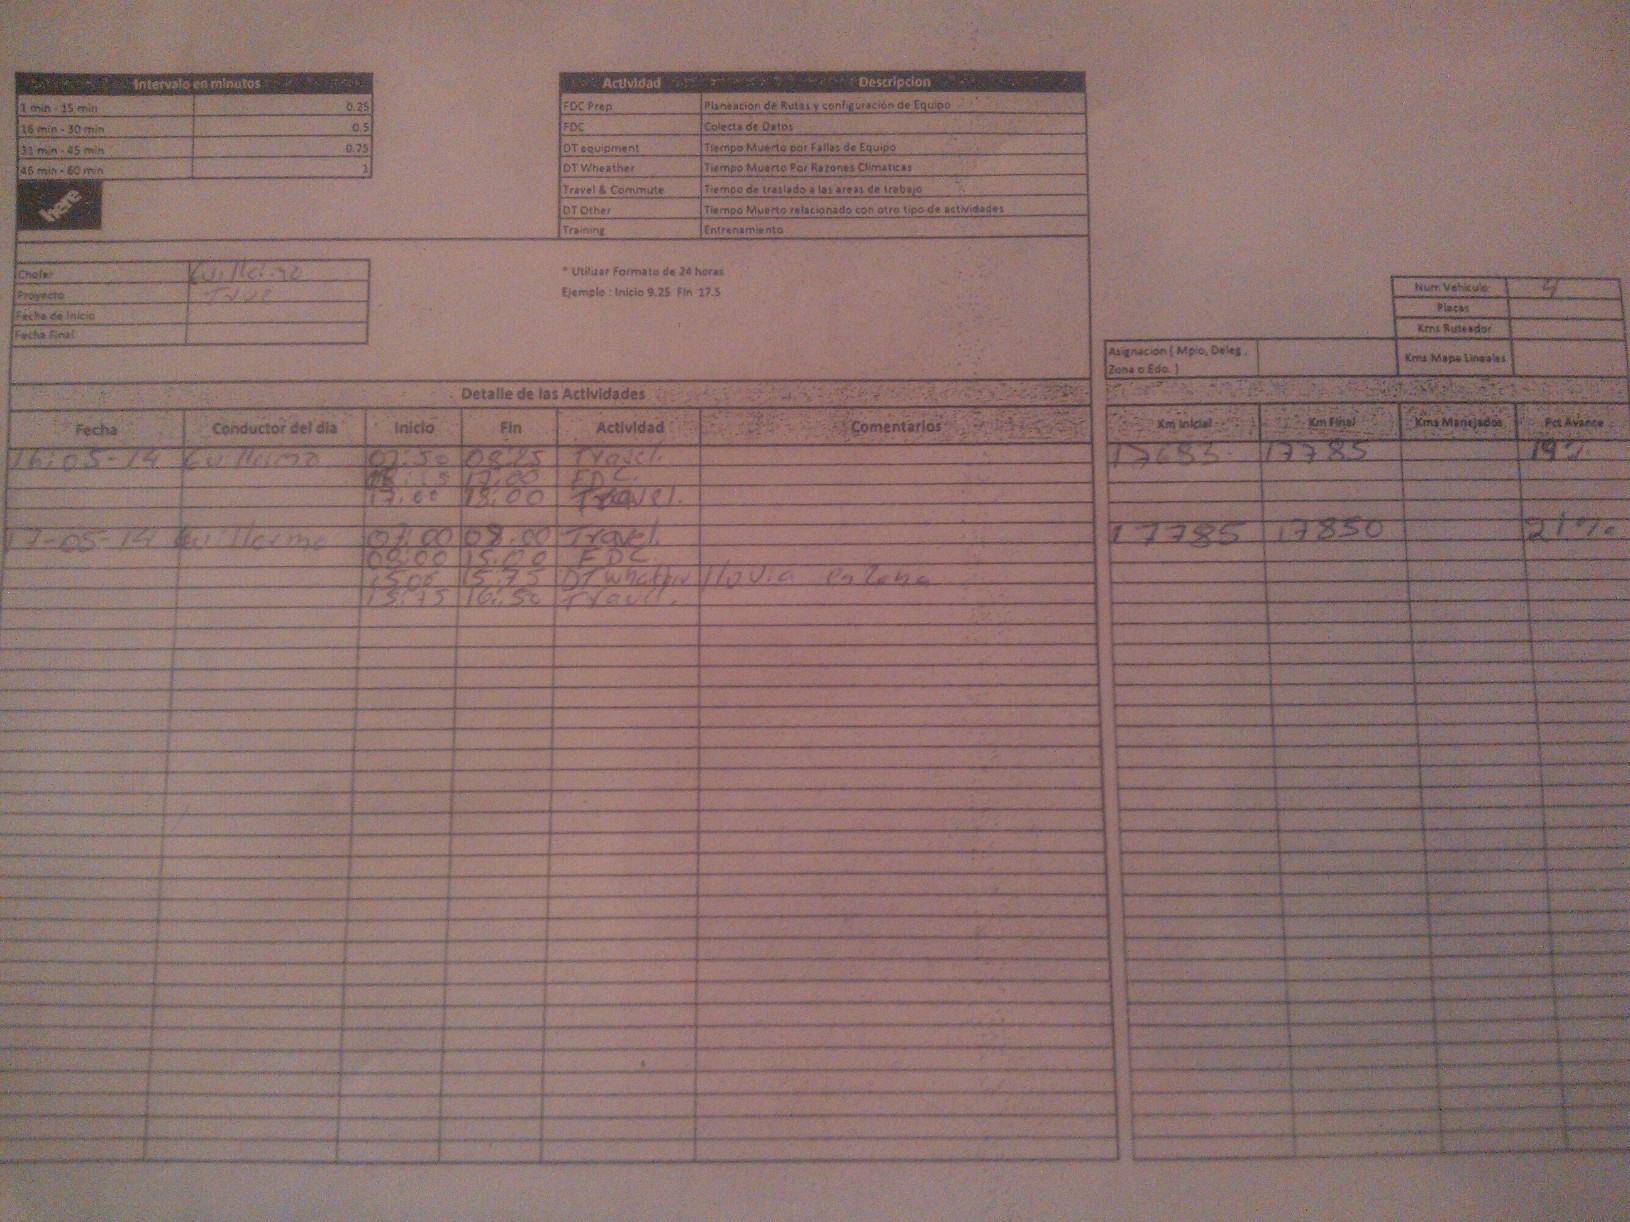 Intervalo en minutos
1 min - 15 min 0.25
16 min - 30 min 0.5
31 min - 45 min 0.75
46 min - 60 min 1
here
Actividad Descripcion
FDC Prep Planeacion de Rutas y configuración de Equipo
FDC Colecta de Datos
DT equipment Tiempo Muerto por Fallas de Equipo
DT Wheather Tiempo Muerto Por Razones Climaticas
Travel & Commute Tiempo de traslado a las areas de trabajo
DT Other Tiempo Muerto relacionado con otro tipo de actividades
Training Entrenamiento
Chofer Guillermo
Proyecto True
Fecha de Inicio
Fecha Final
* Utilizar Formato de 24 horas
Ejemplo : Inicio 9.25 Fin 17.5
Num Vehiculo 4
Placas
Kms Ruteador
Kms Mapa Lineales
Asignacion ( Mpio, Deleg ,
Zona o Edo. )
Detalle de las Actividades
Fecha Conductor del dia Inicio Fin Actividad Comentarios Km Inicial Km Final Kms Manejados Pct Avance
16-05-14 Guillermo 07:50 08:25 Travel. 17683 17785 19%
17:00 FDC.
17:00 18:00 Travel.
17-05-14 Guillermo 07:00 08:00 Travel. 17785 17850 21%
08:00 15:00 FDC
15:00 15:75 DT whather lluvia en zona
15:75 16:50 Travel.